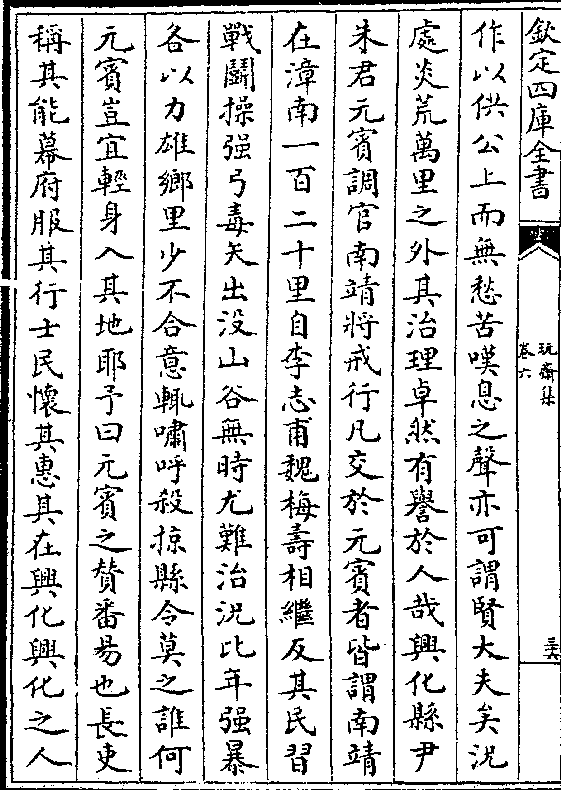 欽定四庫全書
玩齋集
卷六
三六
作以供公上而無愁苦嘆息之聲亦可謂賢大夫矣況
處炎荒萬里之外其治理卓然有譽於人哉興化縣尹
朱君元賓調官南靖將戒行凡交於元賓者皆謂南靖
在漳南一百二十里自李志甫魏梅壽相繼反其民習
戰鬪操强弓毒矢出没山谷無時尤難治況比年强暴
各以力雄鄉里少不合意輒嘯呼殺掠縣令莫之誰何
元賓豈宜輕身入其地耶予曰元賓之賛番昜也長吏
稱其能幕府服其行士民懷其惠其在興化興化之人